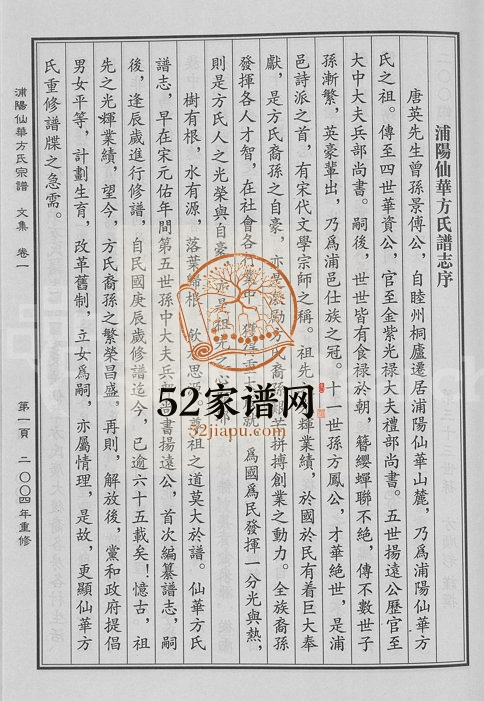 浦陽仙華方氏譜志序
唐英先生曾孫景傳公，自睦州桐廬遷居浦陽仙華山麓，乃爲浦陽仙華方
氏之祖。傳至四世華資公，官至金紫光禄大夫禮部尚書。五世揚遠公歷官至
大中大夫兵部尚書。嗣後，世世皆有食禄於朝，簪纓蟬聯不絶，傳不數世子
孫漸繁，英豪輩出，乃爲浦邑仕族之冠。十一世孫方鳳公，才華絶世，是浦
邑詩派之首，有宋代文學宗師之稱。祖先 輝業績，於國於民有着巨大奉
獻，是方氏裔孫之自豪，亦是激勵方氏裔 拼搏創業之動力。全族裔孫
發揮各人才智，在社會各行 業中 爲國爲民發揮一分光與熱，
則是方氏人之光榮與自豪 是祖
樹有根，水有源，落葉歸根，飲 思源 祖之道莫大於譜。仙華方氏
譜志，早在宋元佑年間第五世孫中大夫兵部尚書揚遠公，首次編纂譜志，嗣
後，逢辰歲進行修譜，自民國庚辰歲修譜迄今，已逾六十五載矣！憶古，祖
先之光輝業績，望今，方氏裔孫之繁榮昌盛。再則，解放後，黨和政府提倡
男女平等，計劃生育，改革舊制，立女爲嗣，亦屬情理，是故，更顯仙華方
氏重修譜牒之急需。
浦陽仙華方氏宗譜 文集 卷一
第一頁 二〇〇四年重修
52家谱网
52jiapu.com